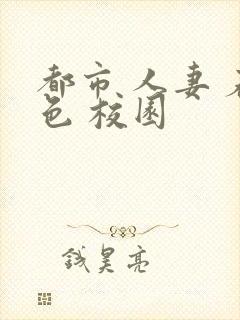 都市人妻
色校园
钱昊亮